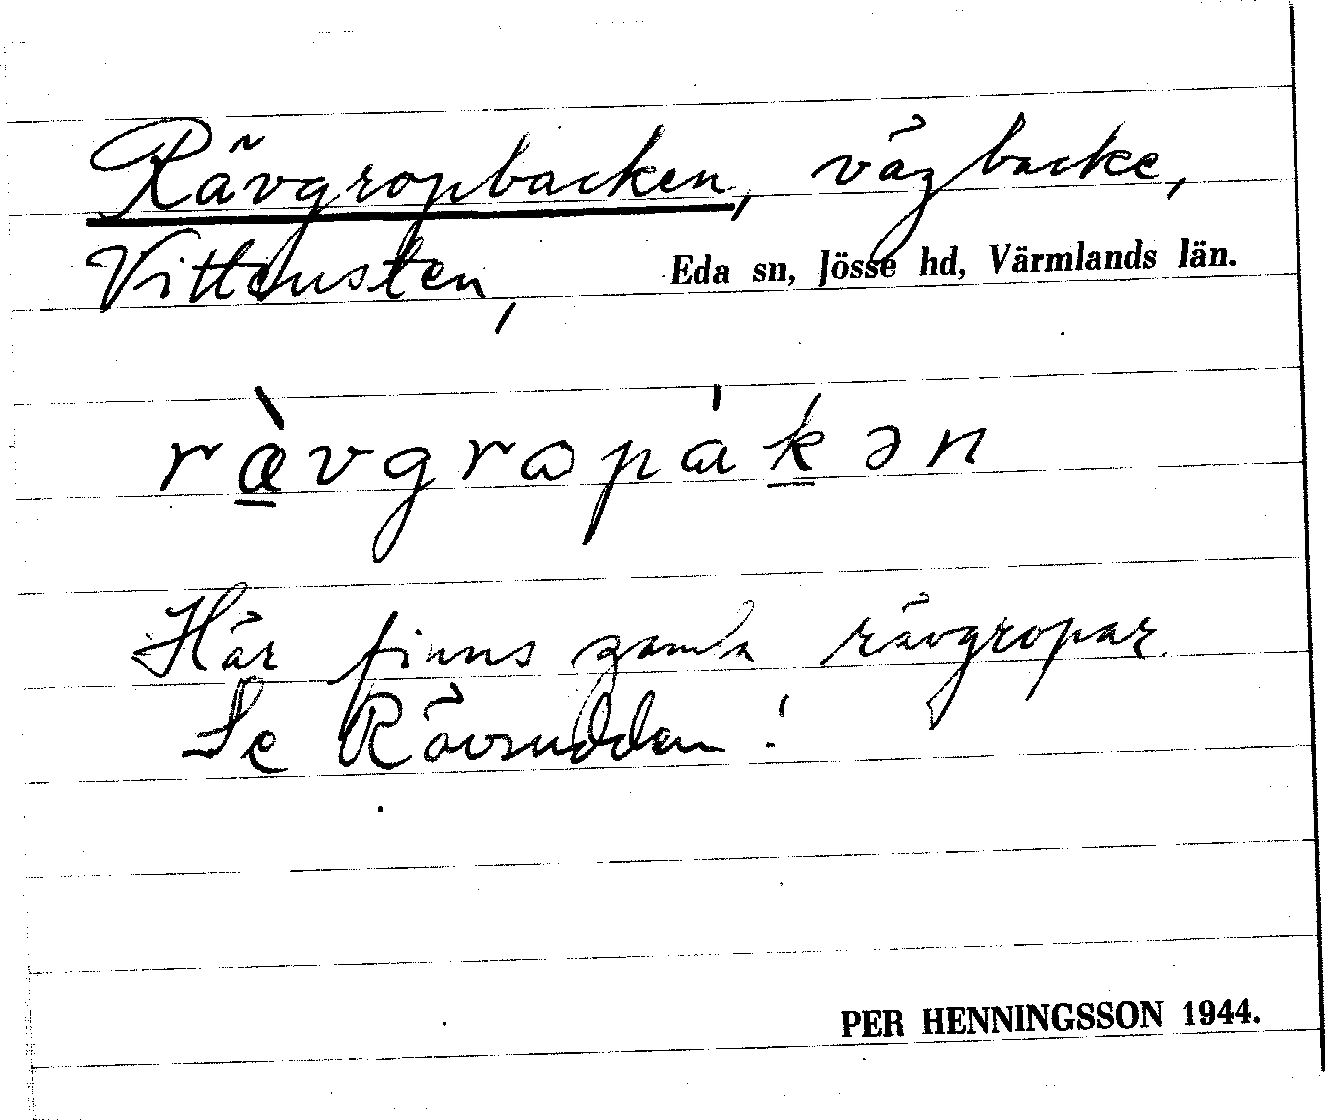 Rävgropbacken, vägbacke,
Vittensten, Eda sn, Jösse hd, Värmlands län.
ræ̀vgropákən
Här finns gamla rävgropar.
Se Rävrudden!
PER HENNINGSSON 1944.